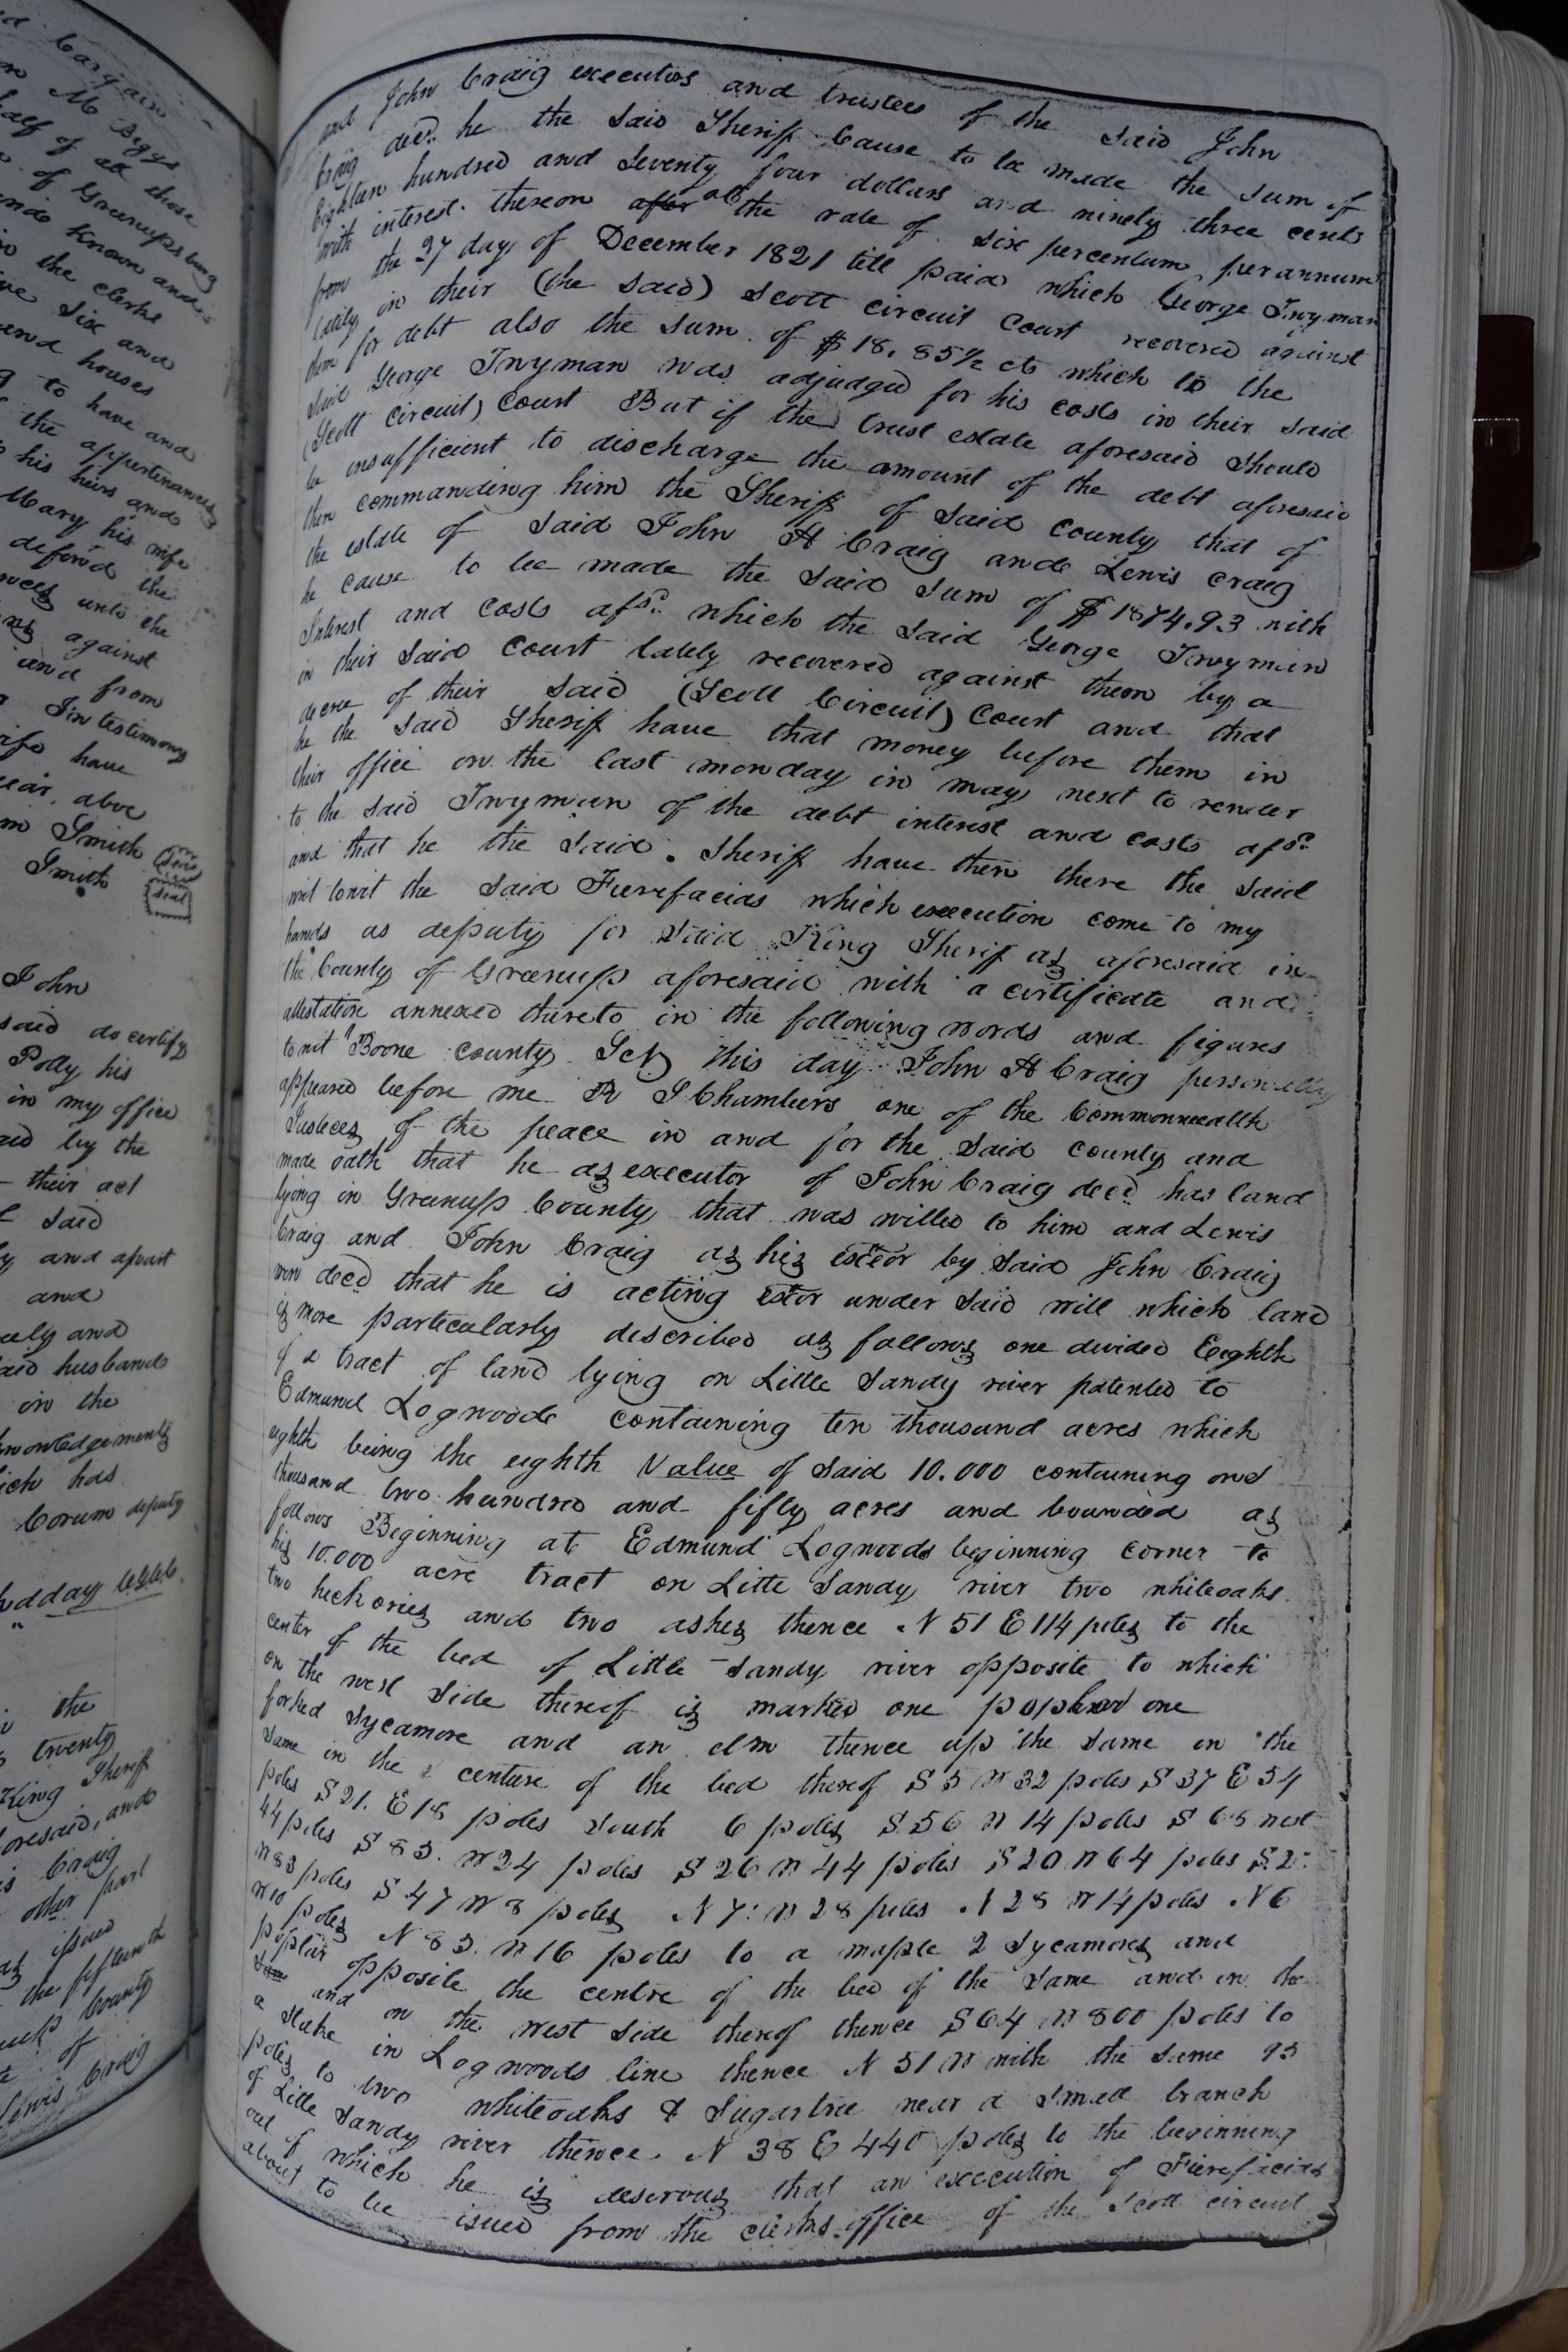 d bargain
M Biggs
half of all those
of Greenupsburg
known and
the clerks
six and
and houses
to have and
the appertenances
his heirs and
Mary his wife
defend the
unto the
against
and from
In testimony
have
year above
Smith
Smith
Seal
Seal
John
said do certify
Polly his
in my office
by the
their act
said
and apart
and
and
said husband
in the
acknowledgements
which has
Corum deputy
the
twenty
King Sheriff
aforesaid, and
Craig
other part
issued
the fifteenth
County
of
Lewis Craig
and John Craig executors and trustees of the said John
Craig decd. he the said Sheriff Cause to be made the sum of
Eighteen hundred and Seventy four dollars and ninety three cents
with interest thereon after at the rate of six percentum, perannum
from the 27 day of December 1821 till paid which George Twyman
lately in their (the said) Scott circuit Court recovered against
them for debt also the sum of $18.85½ cts which to the
said George Twyman was adjudged for his costs in their said
(Scott Circuit) Court But if the trust estate aforesaid should
be insufficient to discharge the amount of the debt aforesaid
then commanding him the Sheriff of said county that of
the estate of said John H Craig and Lewis Craig
he cause to be made the said sum of $1874.93 with
Interest and costs afsd. which the said George Twyman
in their said Court lately recovered against them by a
decree of their said (Scott Circuit) Court and that
he the said Sheriff have that money before them in
their office on the last monday in may next to render
to the said Twyman of the debt interest and costs afsd.
and that he the said. Sheriff have then there the said
writ towit the said Fierefacias which execution come to my
hands as deputy for said King Sheriff as aforesaid in
the County of Greenup aforesaid with a certificate and
attestation annexed thereto in the following words and figures
towit "Boone county Sct this day John H Craig personally
appeared before me R S Chambers one of the Commonwealth
Justices of the peace in and for the said county and
made oath that he as executor of John Craig decd has land
lying in Greenup County that was willed to him and Lewis
Craig and John Craig as his exor by said John Craig
now decd that he is acting exor under said will which land
is more particularly described as follows one divided Eighth
of a tract of land lying on Little Sandy river patented to
Edmund Logwoode containing ten thousand acres which
eighth being the eighth Value of said 10.000 containing one
thousand two hundred and fifty acres and bounded as
follows Beginning at Edmund Logwoods beginning corner to
his 10.000 acre tract on Little Sandy river two whiteoaks
two hickories and two ashes thence N 51 E 114 poles to the
center of the bed of Little Sandy river opposite to which
on the west side thereof is marked one poplar one
forked sycamore and an elm thence up the same in the
same in the centure of the bed thereof S 5 W 32 poles S 37 E 54
poles S 21. E 18 poles South 6 poles S 56 W 14 poles S 68 west
44 poles S 83. W 24 poles S 26 W 44 poles S 20 W 64 poles S 2
W 83 poles S 47 W 8 poles N 7 W 28 poles N 28 W 14 poles N 6
W 10 poles N 83. W 16 poles to a maple 2 Sycamores and
poplar opposite the centre of the bed of the same and in the
same and on the west side thereof thence S 64 W 800 poles to
a stake in Logwoods line thence N 51 W with the same 95
poles to two whiteoaks & Sugartree near a small branch
of Little Sandy river thence. N 38 E 440 poles to the beginning
out of which he is deserous that an execution of Fierefacias
about to be issued from the clerks office of the Scott circuit